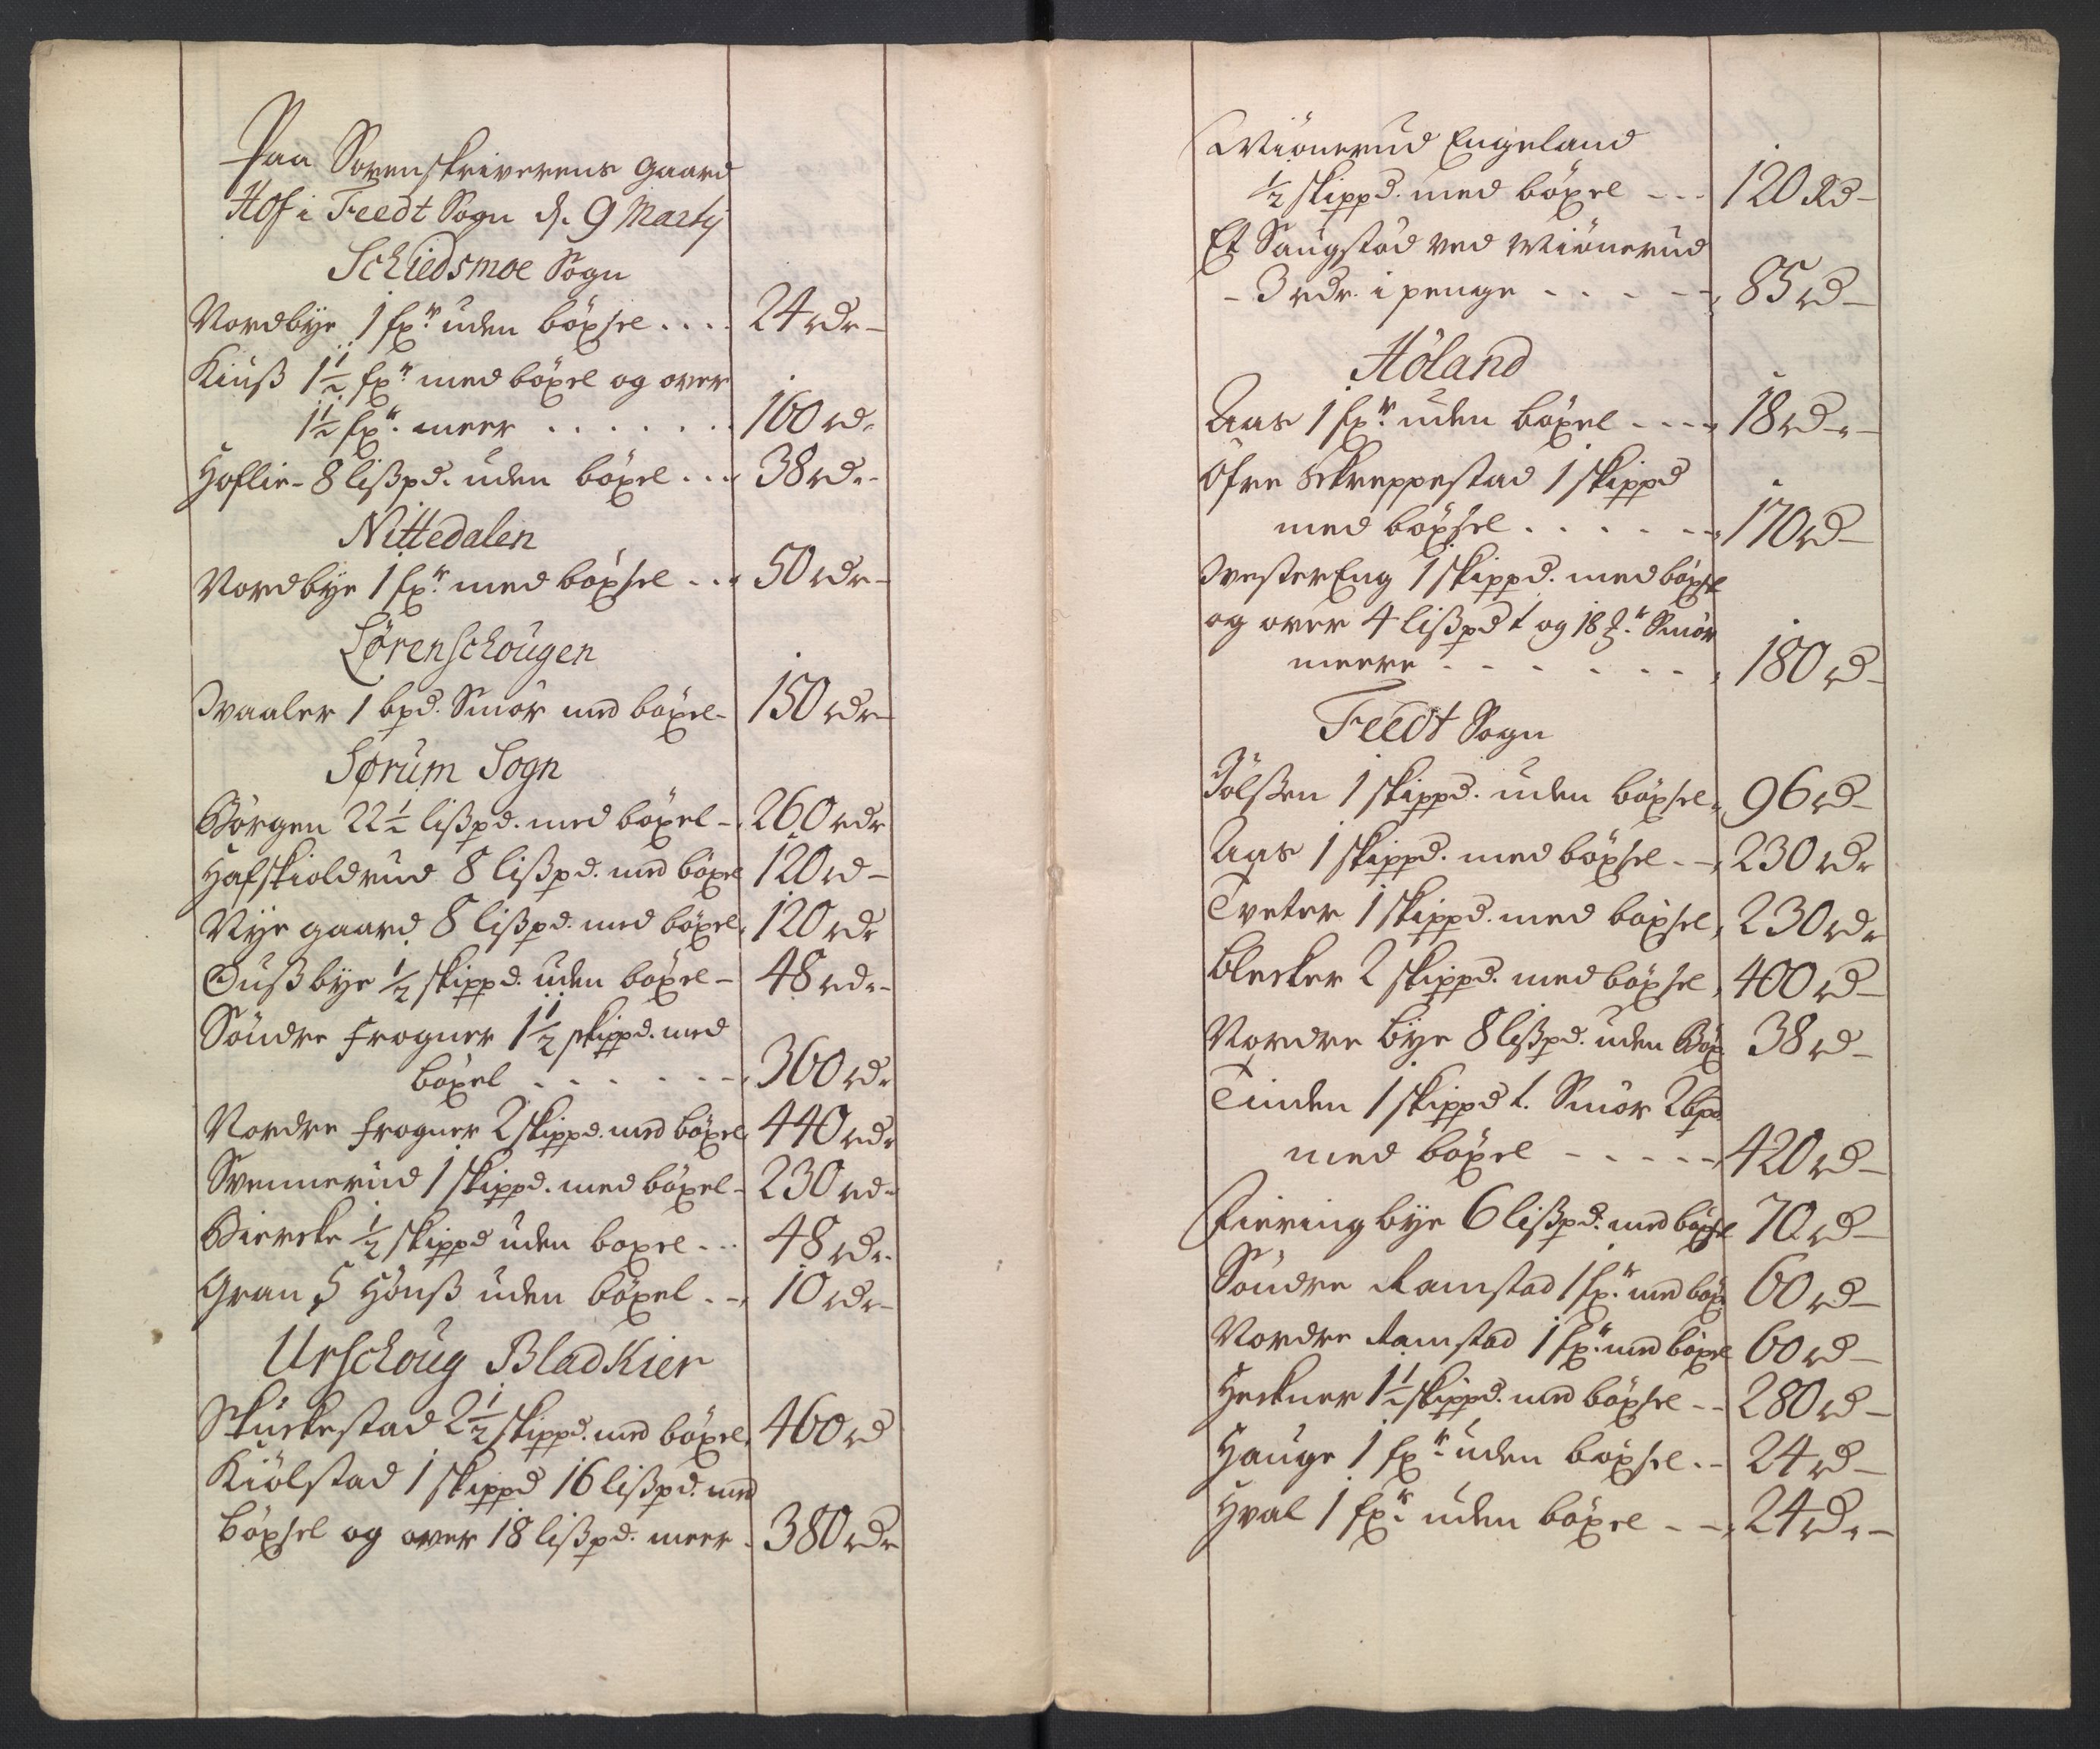 Paa Sorenskriverens Gaard
Hof i Feedt Sogn d. 9 Martij
Schiedsmoe Sogn
Nordbye 1 fxr uden böxsel .... 24 rdr-
Kiuß 1½ fxr med böxel og over
1½ fxr. meer ....... 160 rd.
Hoflie- 8 lißpd. uden böxel ... 38 rd.-
Nittedalen
Nordbye 1 fxr. med böxsel ... 50 rdr-
Lørenschougen
Ivaaler 1 bpd. Smör med böxel- 150 rdr-
Sørum Sogn
Börgen 22½ lißpd. med böxel - 260 rdr
Hafskioldrud 8 lißpd. med böxel 120 rd-
Nye gaard 8 lißpd. med böxel, 120 rdr
Oußbye ½ skippd. uden böxel- 48 rd.-
Söndre Frogner 1½ skippd. med
böxel - - - - - - 360 rdr
Nordre Frogner 2 skippd. med böxel, 440 rdr
Svennerud 1 skippd. med böxel- 230 rd.
Biercke ½ skippd uden boxel - - 48 rd.-
Gran 5 Hönß uden böxel - - 10 rdr-
Urschoug Bladkier
Skuckestad 2½ skippd. med böxel, 460 rd
Kiölstad 1 skippd 16 lißpd. med
böxsel og over 18 lißpd. meer - 380 rdr
Miönerud Engeland
½ skippd. med böxel - - - 120 Rd-
Et Saugstöd ved Miönerud
- 3 rdr. i penge - - - - - 85 rd-
Höland
Aas 1 fxr. uden böxel - - - - 18 rd.-
Öfre Skreppestad 1 skippd
med böxsel . . . . - - 170 rd-
Ivester Eng 1 skippd. med böxsel
og over 4 lißpd t og 18 Smör
meere - - - - - - - 180 rd-
Feedt Sogn
Jölßen 1 skippd. uden böxsel- 96 rd-
Aas 1 skippd. med böxsel - - 230 rdr
Tveter 1 skippd. med böxsel, 230 rdr
Blecker 2 skippd. med böxsel, 400 rd-
Nordre bye 8 lißpd. uden Böx. 38 rd-
Tinden 1 skippd t. Smör 2 bpd
med böxel - - - - - 420 rd-
Fieringbye 6 lißpd. med böxsel 70 rd-
Söndre Ramstad 1 fxr. med böx. 60 rd-
Nordre Ramstad 1 fxr. med böxel 60 rd-
Heckner 1½ skippd. med böxsel - - 280 rd-
Hauge 1 fxr uden böxsel. - 24 rd-
Hval 1 fxr. uden böxel - - - 24 rd.-